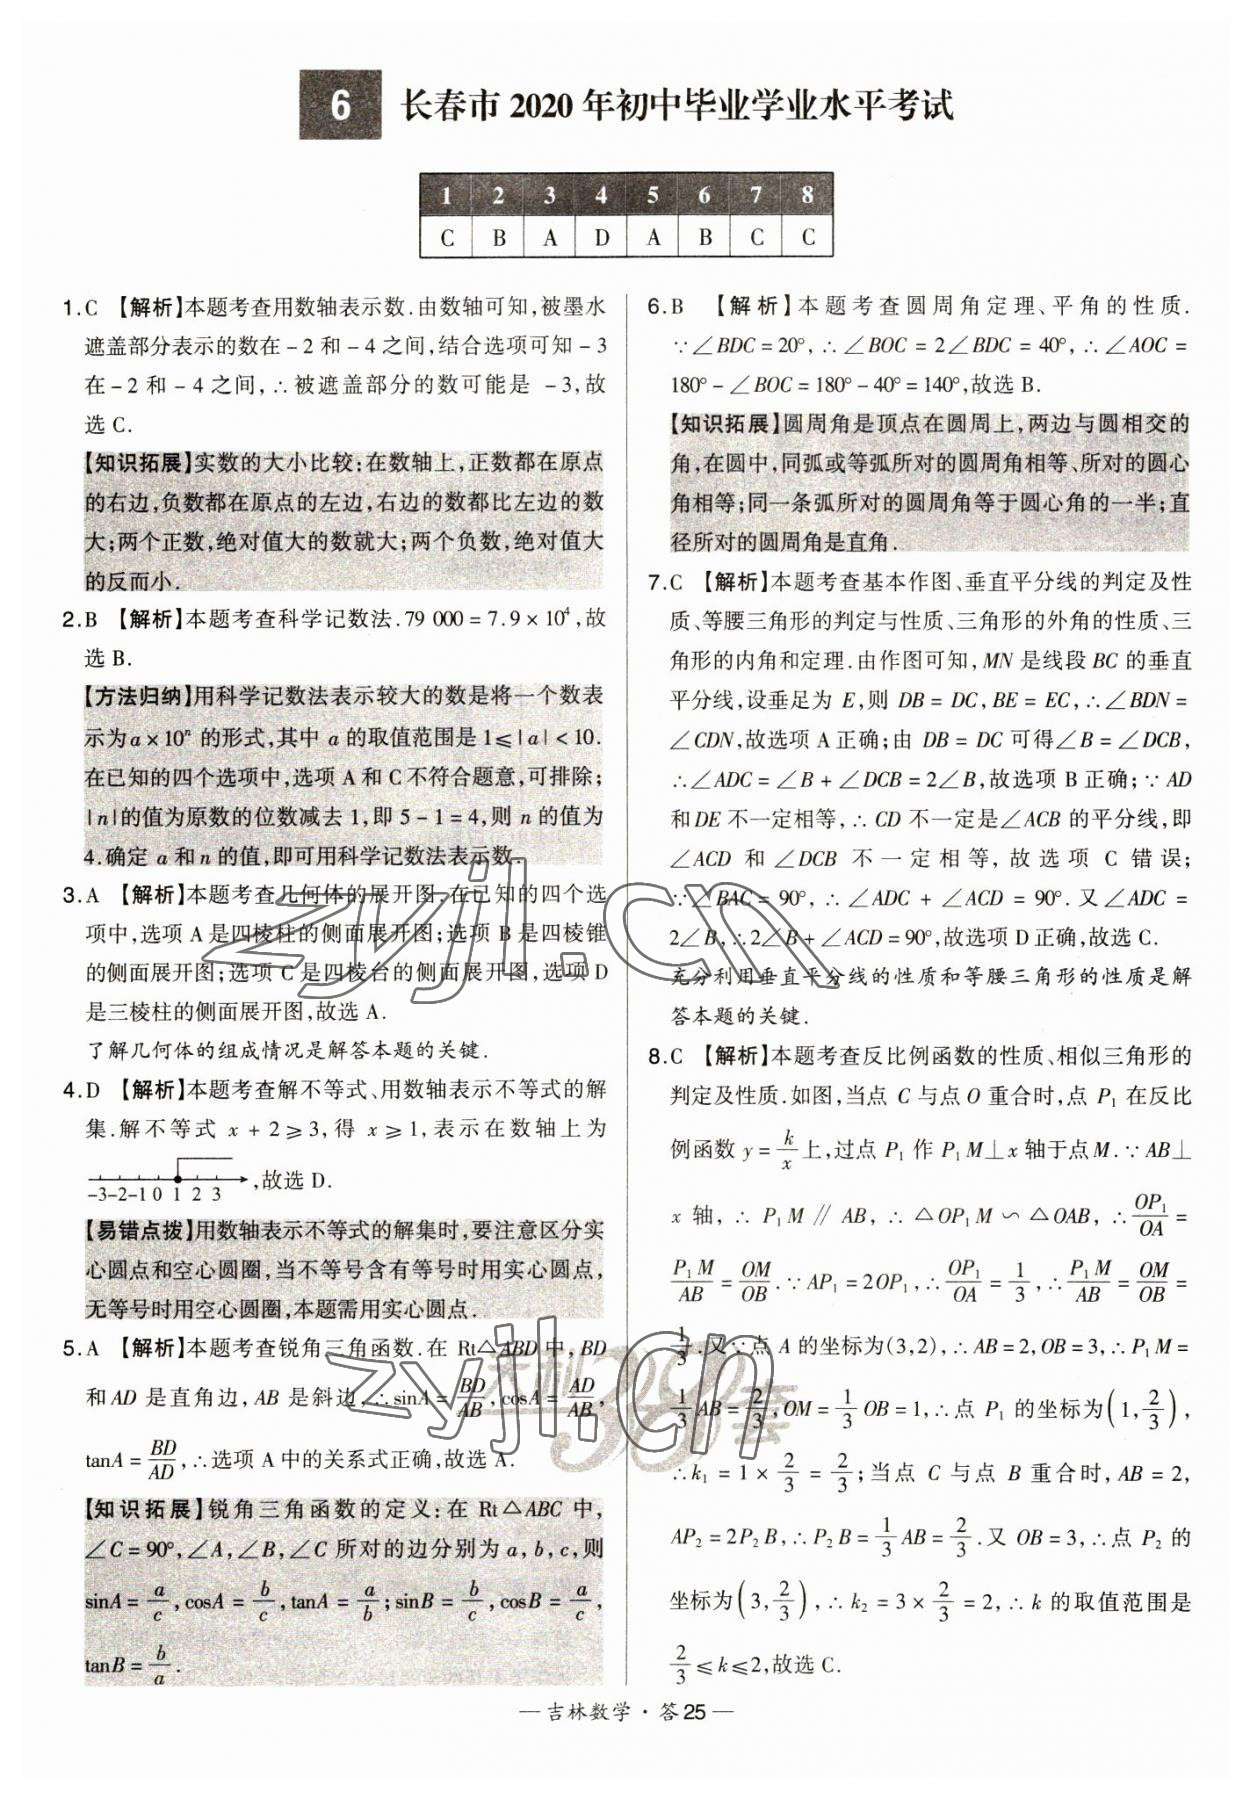 6 长春市2020年初中毕业学业水平考试
1 2 3 4 5 6 7 8
C B A D A B C C
1.C 【解析】本题考查用数轴表示数.由数轴可知,被墨水
遮盖部分表示的数在-2和-4之间,结合选项可知-3
在-2和-4之间,∴被遮盖部分的数可能是-3,故
选C.
【知识拓展】实数的大小比较:在数轴上,正数都在原点
的右边,负数都在原点的左边,右边的数都比左边的数
大;两个正数,绝对值大的数就大;两个负数,绝对值大
的反而小.
2.B 【解析】本题考查科学记数法.79 000=7.9×10⁴,故
选B.
【方法归纳】用科学记数法表示较大的数是将一个数表
示为a×10ⁿ的形式,其中a的取值范围是1≤|a|<10.
在已知的四个选项中,选项A和C不符合题意,可排除;
|n|的值为原数的位数减去1,即5-1=4,则n的值为
4.确定a和n的值,即可用科学记数法表示数.
3.A 【解析】本题考查几何体的展开图.在已知的四个选
项中,选项A是四棱柱的侧面展开图;选项B是四棱锥
的侧面展开图;选项C是四棱台的侧面展开图,选项D
是三棱柱的侧面展开图,故选A.
了解几何体的组成情况是解答本题的关键.
4.D 【解析】本题考查解不等式、用数轴表示不等式的解
集.解不等式x+2≥3,得x≥1,表示在数轴上为
-3-2-1 0 1 2 3 ,故选D.
【易错点拨】用数轴表示不等式的解集时,要注意区分实
心圆点和空心圆圈,当不等号含有等号时用实心圆点,
无等号时用空心圆圈,本题需用实心圆点.
5.A 【解析】本题考查锐角三角函数.在Rt△ABD中,BD
和AD是直角边,AB是斜边,∴sinA=BD/AB,cosA=AD/AB,
tanA=BD/AD,∴选项A中的关系式正确,故选A.
【知识拓展】锐角三角函数的定义:在Rt△ABC中,
∠C=90°,∠A,∠B,∠C所对的边分别为a,b,c,则
sinA=a/c,cosA=b/c,tanA=a/b;sinB=b/c,cosB=a/c,
tanB=b/a.
6.B 【解析】本题考查圆周角定理、平角的性质.
∵∠BDC=20°,∴∠BOC=2∠BDC=40°,∴∠AOC=
180°-∠BOC=180°-40°=140°,故选B.
【知识拓展】圆周角是顶点在圆周上,两边与圆相交的
角,在圆中,同弧或等弧所对的圆周角相等、所对的圆心
角相等;同一条弧所对的圆周角等于圆心角的一半;直
径所对的圆周角是直角.
7.C 【解析】本题考查基本作图、垂直平分线的判定及性
质、等腰三角形的判定与性质、三角形的外角的性质、三
角形的内角和定理.由作图可知,MN是线段BC的垂直
平分线,设垂足为E,则DB=DC,BE=EC,∴∠BDN=
∠CDN,故选项A正确;由DB=DC可得∠B=∠DCB,
∴∠ADC=∠B+∠DCB=2∠B,故选项B正确;∵AD
和DE不一定相等,∴CD不一定是∠ACB的平分线,即
∠ACD和∠DCB不一定相等,故选项C错误;
∵∠BAC=90°,∴∠ADC+∠ACD=90°.又∠ADC=
2∠B,∴2∠B+∠ACD=90°,故选项D正确,故选C.
充分利用垂直平分线的性质和等腰三角形的性质是解
答本题的关键.
8.C 【解析】本题考查反比例函数的性质、相似三角形的
判定及性质.如图,当点C与点O重合时,点P₁在反比
例函数y=k/x上,过点P₁作P₁M⊥x轴于点M.∵AB⊥
x轴,∴P₁M∥AB,∴△OP₁M∽△OAB,∴OP₁/OA=
P₁M/AB=OM/OB.∵AP₁=2OP₁,∴OP₁/OA=1/3,∴P₁M/AB=OM/OB=
1/3.又∵点A的坐标为(3,2),∴AB=2,OB=3,∴P₁M=
1/3AB=2/3,OM=1/3OB=1,∴点P₁的坐标为(1,2/3),
∴k₁=1×2/3=2/3;当点C与点B重合时,AB=2,
AP₂=2P₂B,∴P₂B=1/3AB=2/3.又OB=3,∴点P₂的
坐标为(3,2/3),∴k₂=3×2/3=2,∴k的取值范围是
2/3≤k≤2,故选C.
— 吉林数学·答25 —
zyjl.cn
zyjl.cn